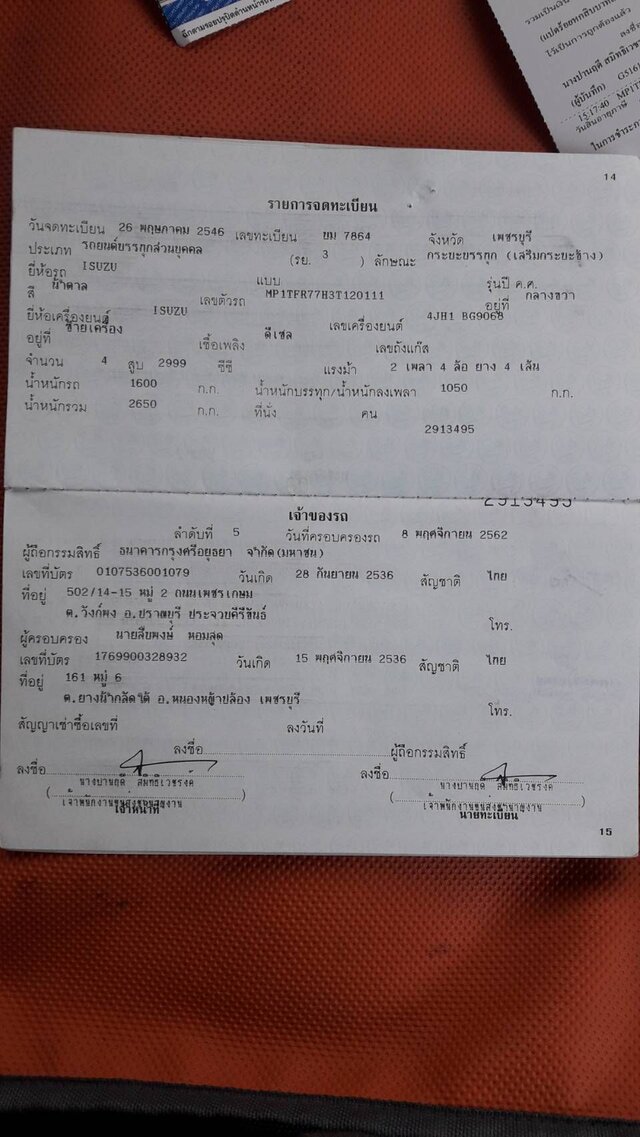 ฉีกตามรอยปรุปิดด้านหน้ารถ
รวมเป็นเงิน
(แปดร้อยหกสิบบาท
ไว้เป็นการถูกต้องแล้ว
ลงชื่อ
นางปานฤดี สมิทธิเวชรงค์
(ผู้บันทึก)
15:17:40
วันสิ้นอายุภาษี
ในการชำระภา
14
รายการจดทะเบียน
วันจดทะเบียน 26 พฤษภาคม 2546 เลขทะเบียน ยม 7864 จังหวัด เพชรบุรี
ประเภท รถยนต์บรรทุกส่วนบุคคล (รย. 3 ) ลักษณะ กระบะบรรทุก (เสริมกระบะข้าง)
ยี่ห้อรถ ISUZU แบบ รุ่นปี ค.ศ.
สี น้ำตาล เลขตัวรถ MP1TFR77H3T120111 อยู่ที่ กลางขวา
ยี่ห้อเครื่องยนต์ ISUZU เลขเครื่องยนต์ 4JH1 BG9068
อยู่ที่ ซ้ายเครื่อง เชื้อเพลิง ดีเซล เลขถังแก๊ส
จำนวน 4 สูบ 2999 ซีซี แรงม้า 2 เพลา 4 ล้อ ยาง 4 เส้น
น้ำหนักรถ 1600 ก.ก. น้ำหนักบรรทุก/น้ำหนักลงเพลา 1050 ก.ก.
น้ำหนักรวม 2650 ก.ก. ที่นั่ง คน
2913495
2913495
เจ้าของรถ
ลำดับที่ 5 วันที่ครอบครองรถ 8 พฤศจิกายน 2562
ผู้ถือกรรมสิทธิ์ ธนาคารกรุงศรีอยุธยา จำกัด(มหาชน)
เลขที่บัตร 0107536001079 วันเกิด 28 กันยายน 2536 สัญชาติ ไทย
ที่อยู่ 502/14-15 หมู่ 2 ถนนเพชรเกษม
ต.วังก์พง อ.ปราณบุรี ประจวบคีรีขันธ์ โทร.
ผู้ครอบครอง นายสืบพงษ์ หอมสุด
เลขที่บัตร 1769900328932 วันเกิด 15 พฤศจิกายน 2536 สัญชาติ ไทย
ที่อยู่ 161 หมู่ 6
ต.ยางน้ำกลัดใต้ อ.หนองหญ้าปล้อง เพชรบุรี โทร.
สัญญาเช่าซื้อเลขที่ ลงวันที่
ลงชื่อ ผู้ถือกรรมสิทธิ์
ลงชื่อ ลงชื่อ
นางปานฤดี สมิทธิเวชรงค์ นางปานฤดี สมิทธิเวชรงค์
(เจ้าพนักงานขนส่งชำนาญงาน) (เจ้าพนักงานขนส่งชำนาญงาน)
เจ้าหน้าที่ นายทะเบียน
15